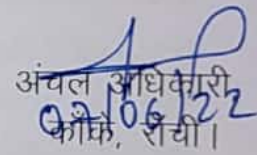 अंचल अधिकारी
07/06/22
काँके, राँची।